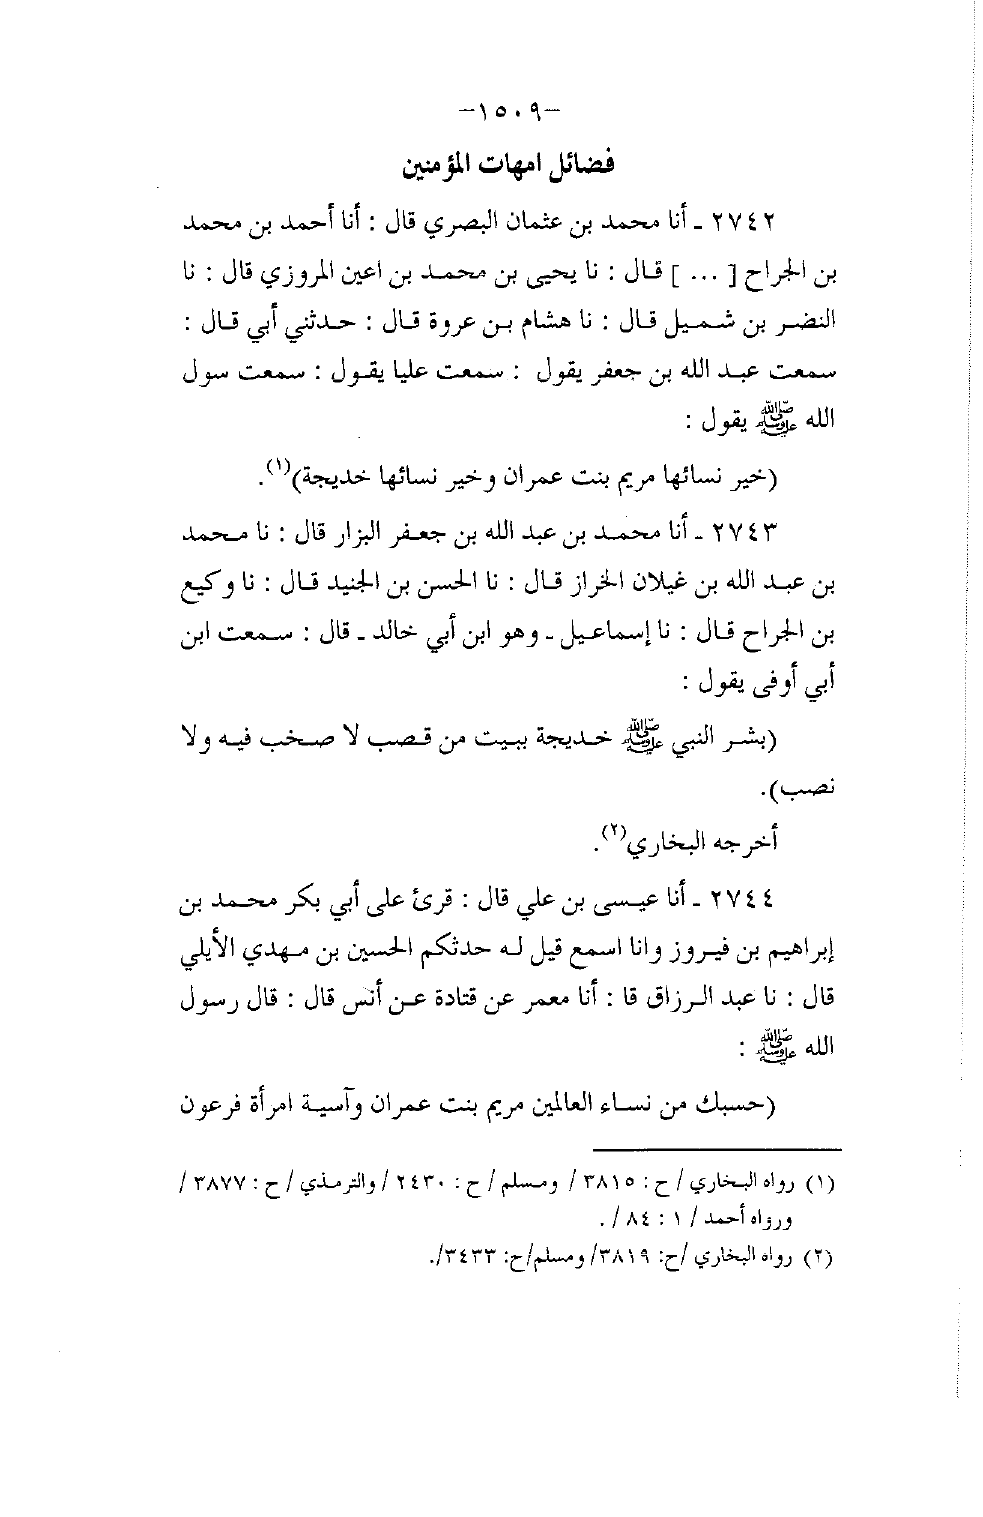 –١٥٠٩–
فضائل امهات المؤمنين
٢٧٤٢ ـ أنا محمد بن عثمان البصري قال : أنا أحمد بن محمد
بن الجراح [ ... ] قال : نا يحيى بن محمد بن اعين المروزي قال : نا
النضر بن شميل قال : نا هشام بن عروة قال : حدثني أبي قال :
سمعت عبد الله بن جعفر يقول : سمعت عليا يقول : سمعت سول
الله ﷺ يقول :
(خير نسائها مريم بنت عمران وخير نسائها خديجة)(١).
٢٧٤٣ ـ أنا محمد بن عبد الله بن جعفر البزار قال : نا محمد
بن عبد الله بن غيلان الخراز قال : نا الحسن بن الجنيد قال : نا وكيع
بن الجراح قال : نا إسماعيل ـ وهو ابن أبي خالد ـ قال : سمعت ابن
أبي أوفى يقول :
(بشر النبي ﷺ خديجة ببيت من قصب لا صخب فيه ولا
نصب).
أخرجه البخاري(٢).
٢٧٤٤ ـ أنا عيسى بن علي قال : قرئ على أبي بكر محمد بن
إبراهيم بن فيروز وانا اسمع قيل له حدثكم الحسين بن مهدي الأيلي
قال : نا عبد الرزاق قا : أنا معمر عن قتادة عن أنس قال : قال رسول
الله ﷺ :
(حسبك من نساء العالمين مريم بنت عمران وآسية امرأة فرعون
(١) رواه البخاري / ح : ٣٨١٥ / ومسلم / ح : ٢٤٣٠ / والترمذي / ح : ٣٨٧٧ /
ورواه أحمد / ١ : ٨٤ / .
(٢) رواه البخاري /ح: ٣٨١٩/ ومسلم/ح: ٣٤٣٣/.